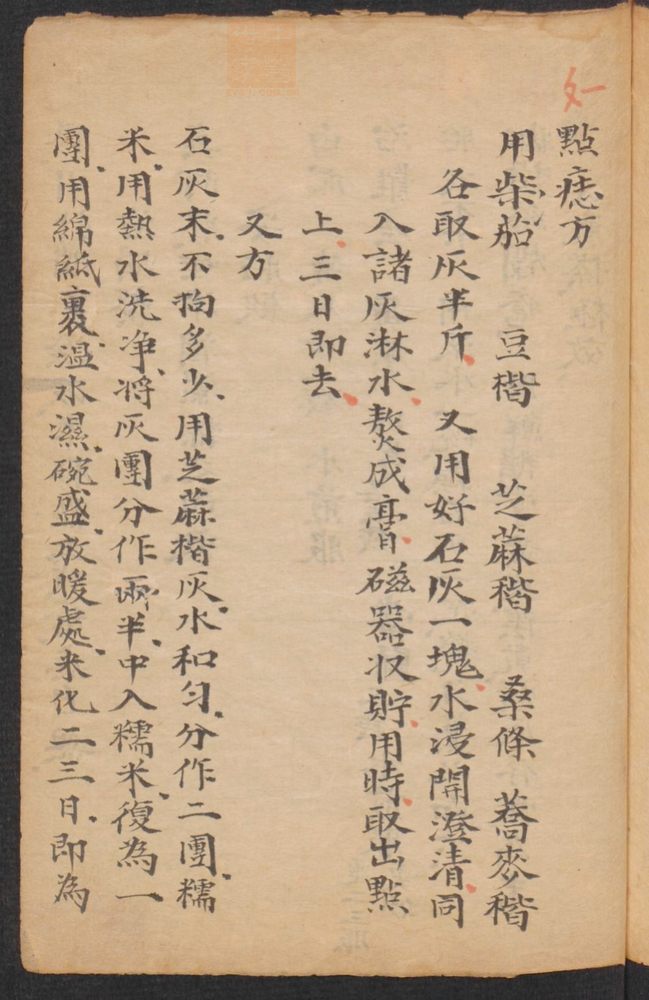 點痣方
用柴船　豆楷　芝蔴稭　桑條　蕎麥稭
各取灰半斤又用好石灰一塊水浸開澄清同
入諸灰淋水熬成膏磁器收貯用時取出點
上三日即去
又方
石灰末不拘多少用芝蔴楷灰水和匀分作二團糯
米用熱水洗净将灰團分作兩半中入糯米復為一
團用綿紙裹温水濕碗盛放暖處米化二三日即為